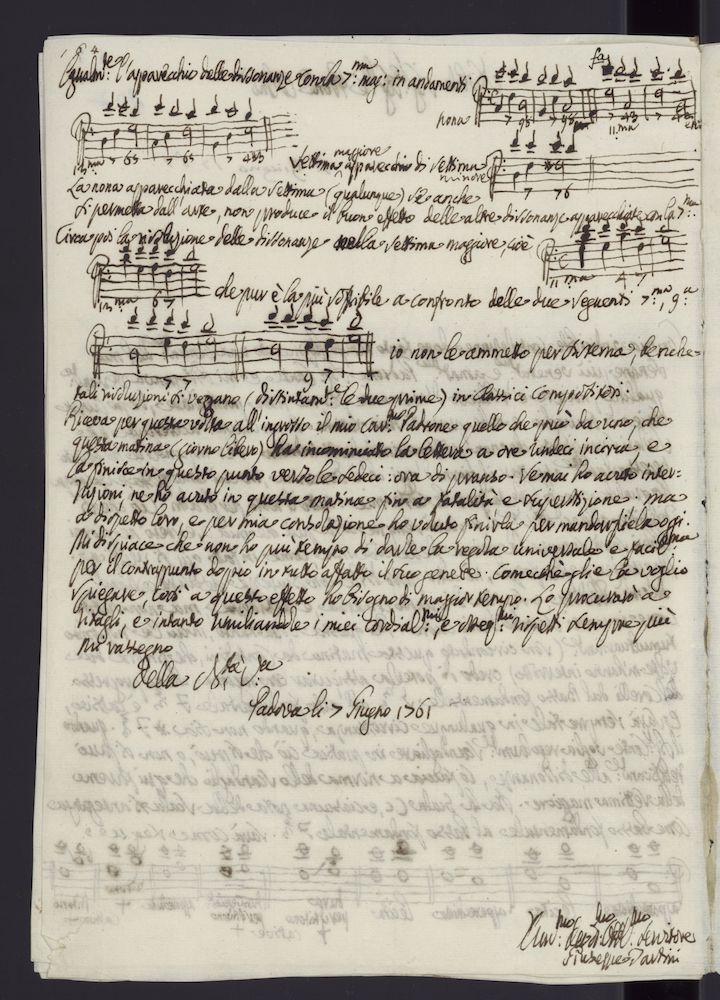 Egualm.te l'apparecchio delle dissonanze con la 7.ma mag.e in andamenti
fa
nona
7 98 7 98
11.ma 7 7 4 3
7 65 7 65 7 4 3 3
settima maggiore apparecchio di settima minore
7 76
La nona apparecchiata dalla settima (qualunque) se anche
si permetta dall'arte, non produce il buon effetto delle altre dissonanze apparecchiate con la 7.ma
Circa poi la risoluzione delle dissonanze nella settima maggiore, cioè
11.ma 4 7
13.ma 6 7
che pur è la più soffribile a confronto delle due seguenti 7.ma, 9.a
7 7
9 7
io non le ammetto per sistema, benche
tali risoluzioni si vegano (distintam.te le due prime) in classici compositori.
Riceva per questa volta all'ingrosso il mio Padrone quello che può da uno, che
questa matina (giorno libero) ha incominciato la lettera a ore undeci incirca, e
la finisce in questo punto verso le dodeci: ora di pranso. Se mai ho avuto inter-
ruzioni, ne ho avuto in questa matina fino a fatalità e superstizione. ma
a dispetto loro, e per mia consolazione ho voluto finirla per mandargliela ogi.
Mi dispiace che non ho più tempo di darle la regola universale e facil.ma
per il contrappunto doppio in tutto affatto il suo genere. Comecchè glie la voglio
spiegare, così a questo effetto ho bisogno di maggior tempo. Lo procurarò a
ritagli, e intanto umiliandole i miei cordial.mi, e osseq.mi rispetti sempre più
mi rassegno
Della
Padova li 7 Giugno 1761
servitore
Giuseppe Tartini